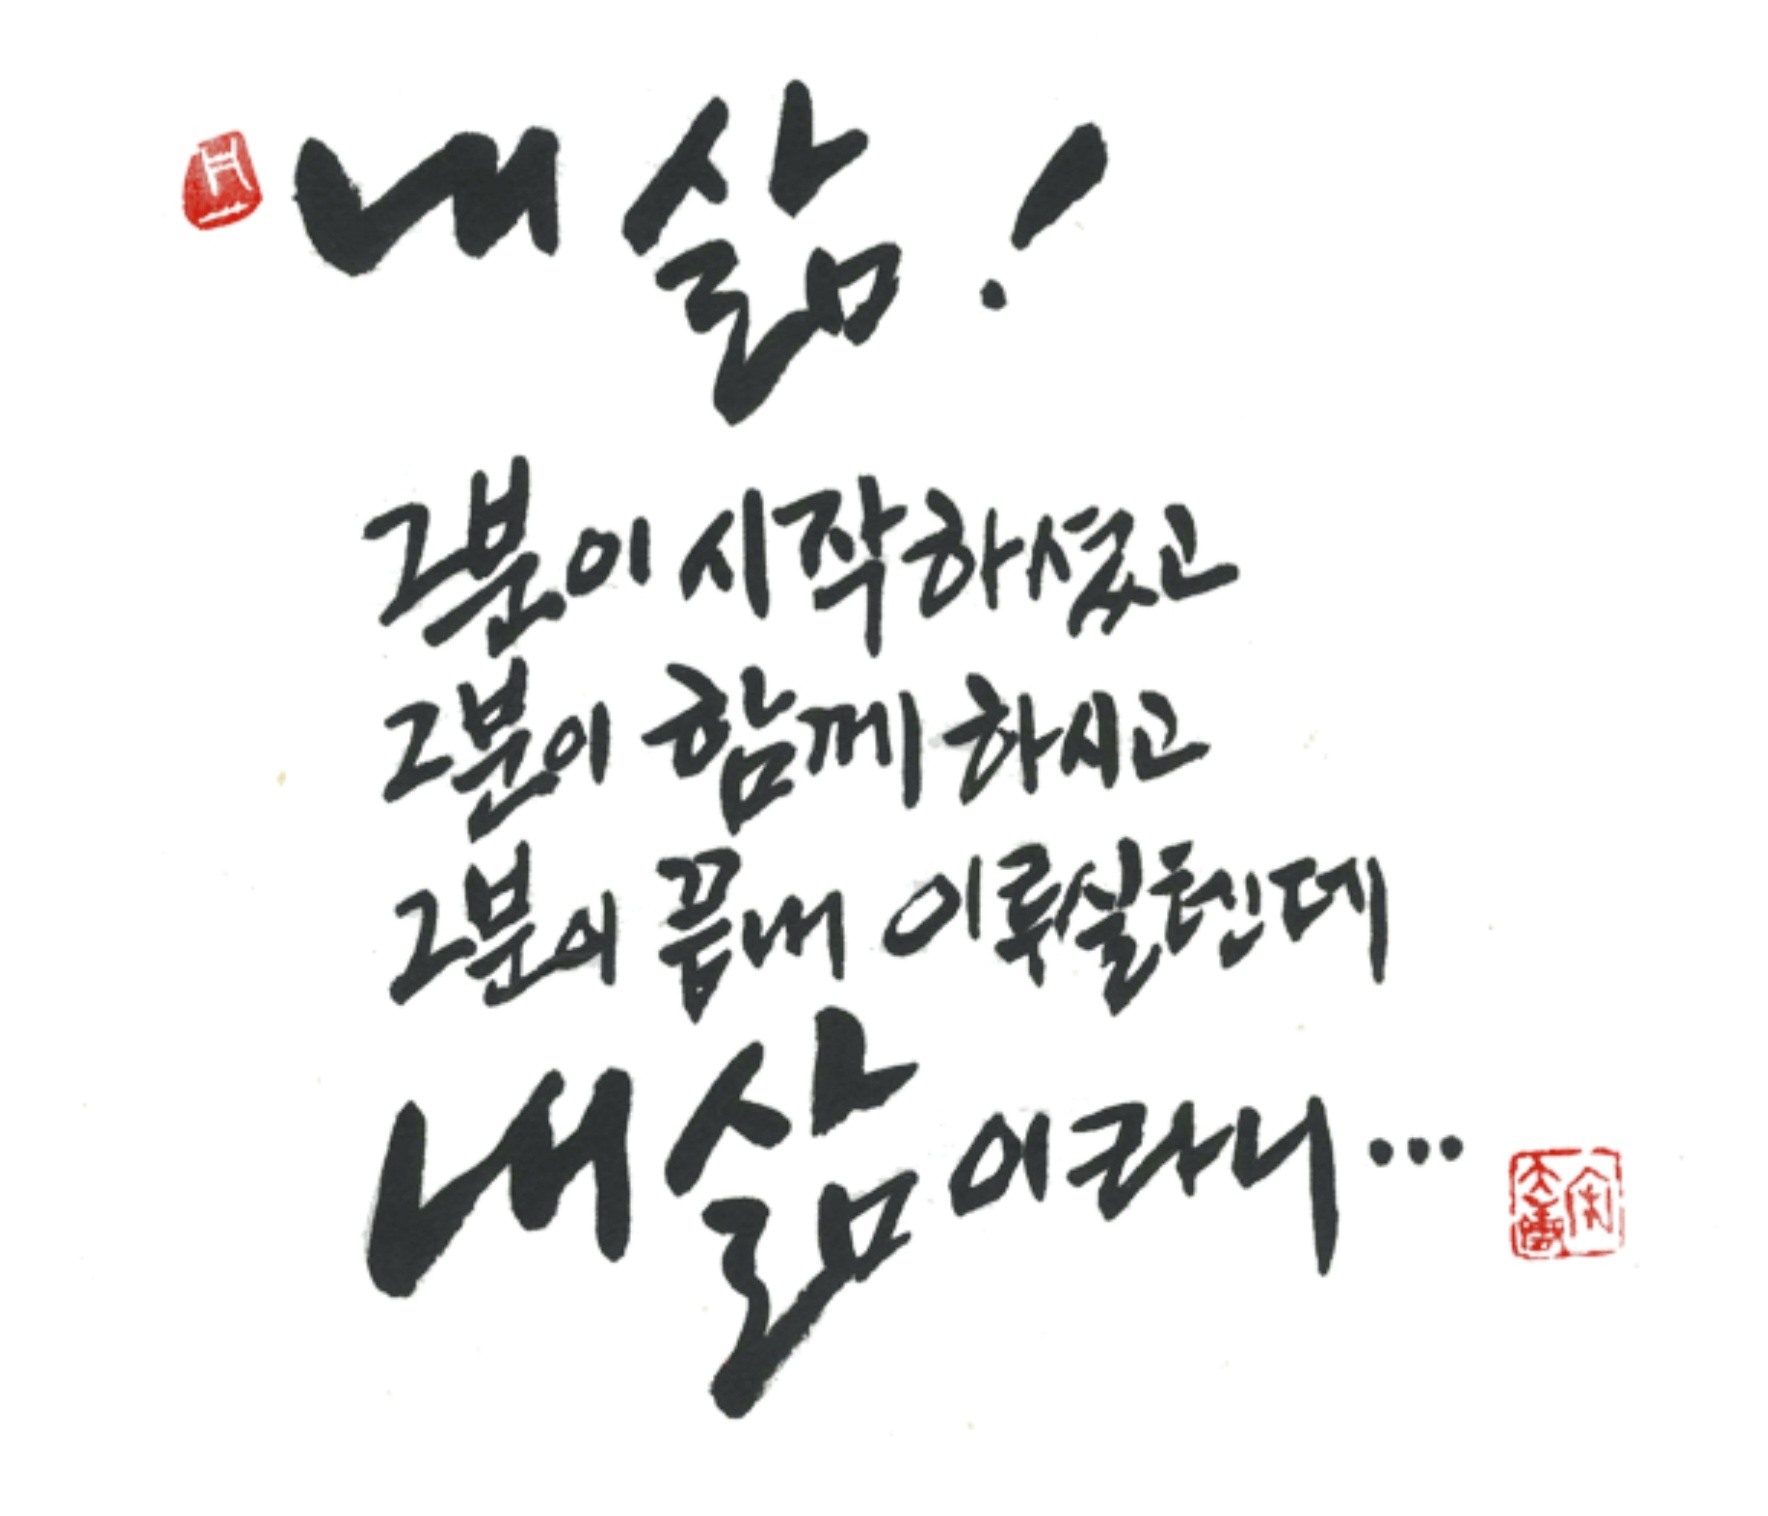 내 삶!
그분이 시작하셨고
그분이 함께 하시고
그분이 끝내 이루실텐데
내 삶이라니...